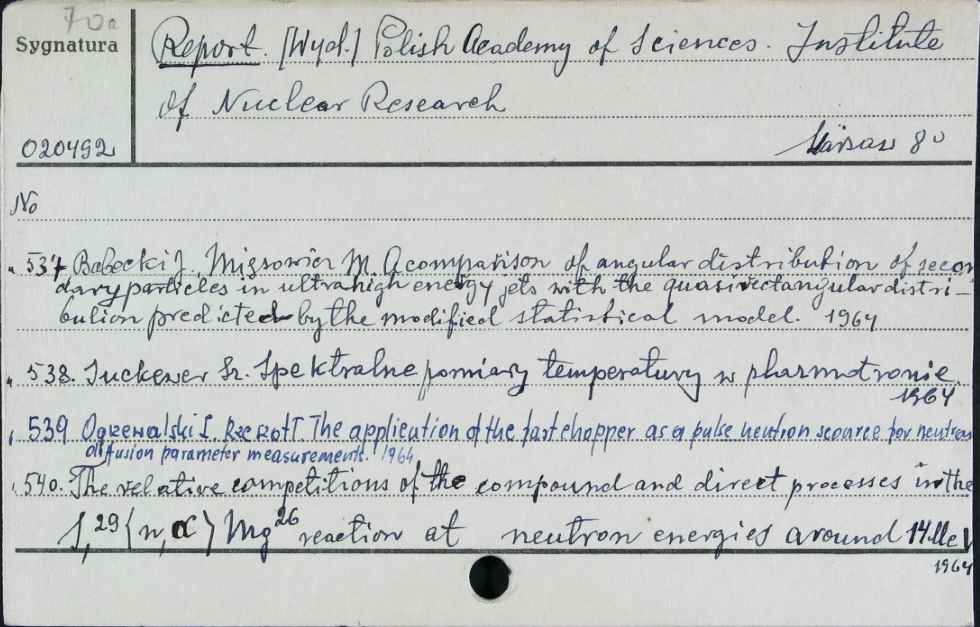 70a
Sygnatura
Report. [Wyd.] Polish Academy of Sciences. Institute
of Nuclear Research
020492
Warsaw 8⁰
No
" 537 Babecki J. Mięsowicz M. A comparison of angular distribution of secon
dary particles in ultrahigh energy jets with the quasirectangular distri-
bution predicted by the modified statistical model. 1964
" 538. Suckewer Sz. Spektralne pomiary temperatury w plazmotronie.
1964
" 539 Ogrzewalski Z. Rzeszot T. The application of the fast chopper as a pulse neutron source for neutron
diffusion parameter measurements. 1964
" 540. The relative competitions of the compound and direct processes in the
S,²⁹ (n, α) Mg²⁶ reaction at neutron energies around 14 MeV
1964